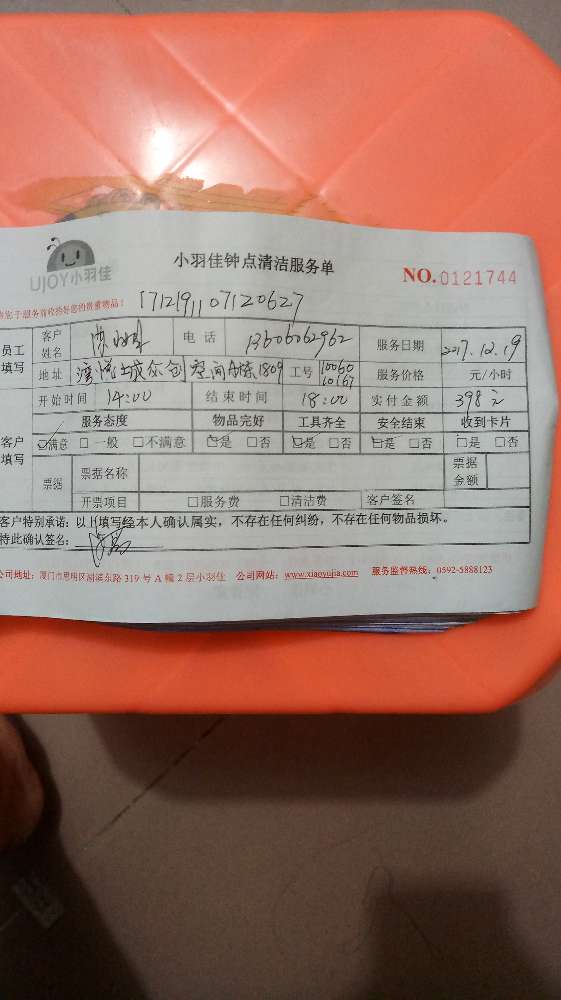 UJOY小羽佳
小羽佳钟点清洁服务单
NO.0121744
服务前收拾好您的贵重物品!
1712191107120627
员工填写 客户姓名 电话 13606062962 服务日期 2017.12.19
地址 工号 10060 10167 服务价格 元/小时
开始时间 14:00 结束时间 18:00 实付金额 398元
服务态度 物品完好 工具齐全 安全结束 收到卡片
客户填写 ☑满意 □一般 □不满意 ☑是 □否 ☑是 □否 ☑是 □否 □是 □否
票据 票据名称 票据金额
开票项目 □服务费 □清洁费 客户签名
客户特别承诺:以上填写经本人确认属实,不存在任何纠纷,不存在任何物品损坏。
特此确认签名:
公司地址:厦门市思明区湖滨东路319号A幢2层小羽佳 公司网站:www.xiaoyujia.com 服务监督热线:0592-5888123